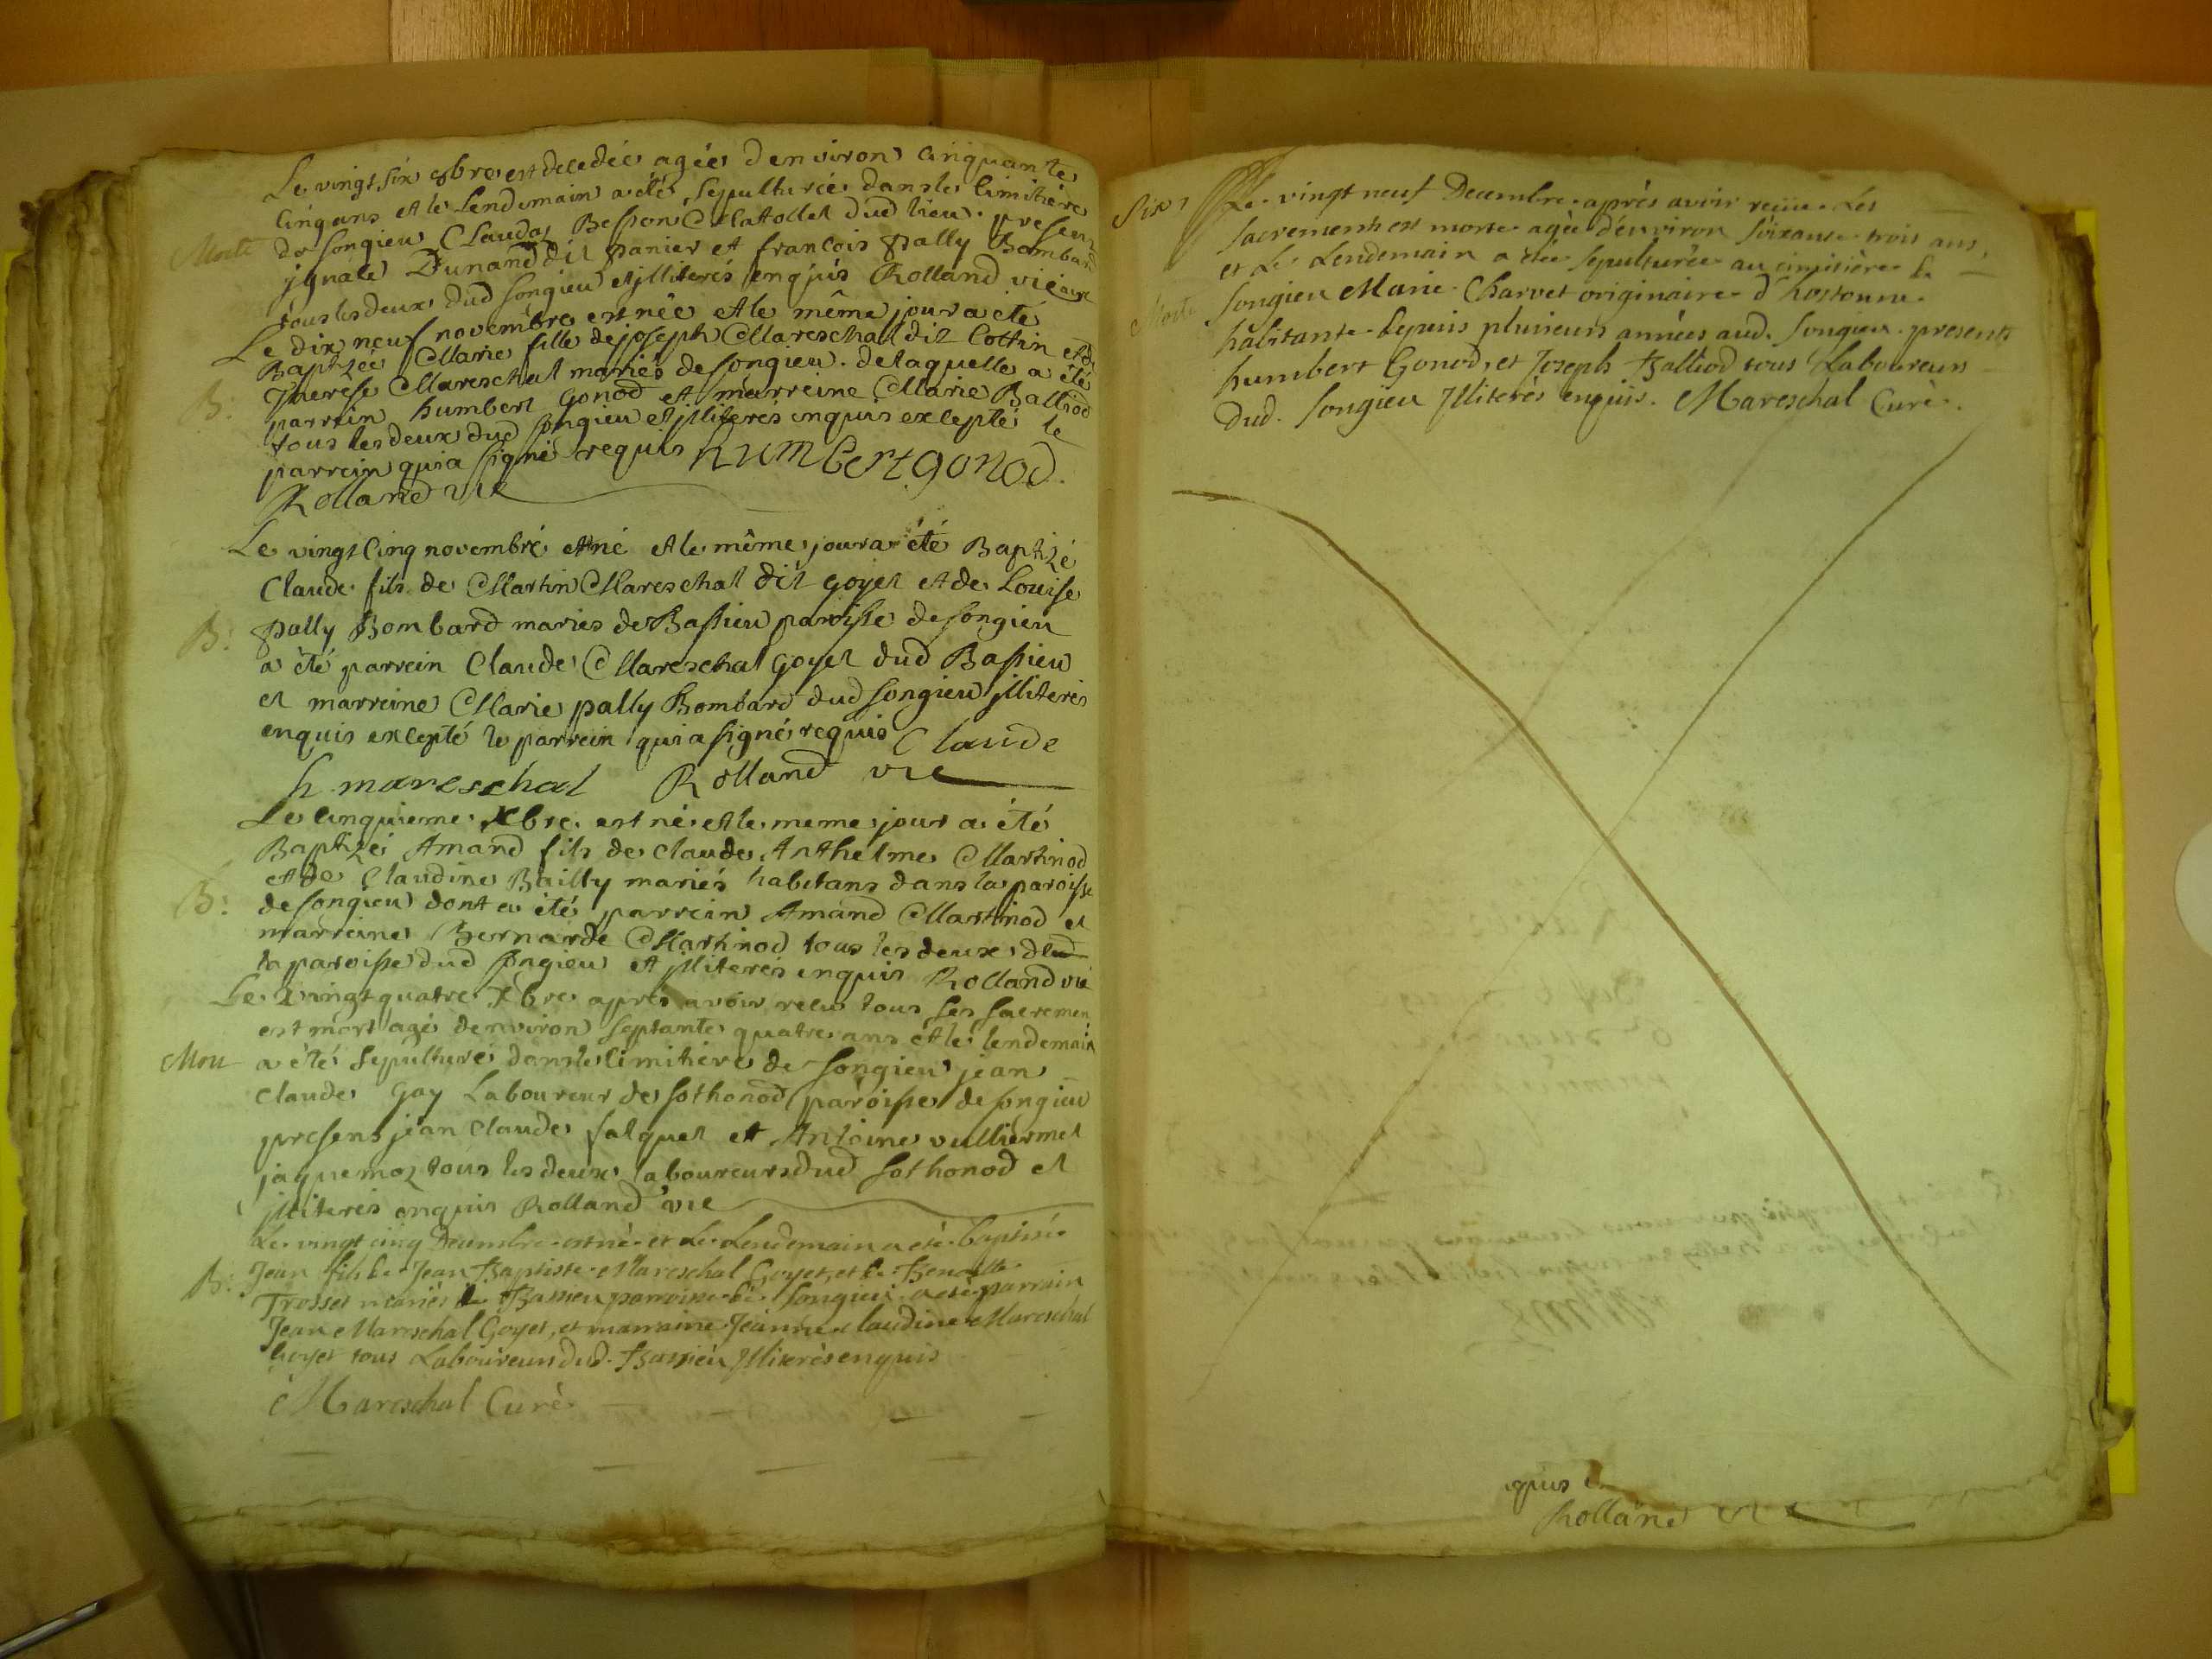 Le vingt six 8bre est decedée agée denviron cinquante
Cinq ans et le Lendemain a été Sepulturée dans le Cimitière
Morte de Songieu Clauda Besson Matollet dud lieu. presents
ignace Dunand dit panier et francois pally Bombard
tous les deux dud Songieu et jlliterés enquis Rolland vicaire
Le dix neuf novembre est née et le même jour a été
Baptzée Marie fille de joseph Mareschal dit Cottin et de
B: Therese Mareschal mariés de songieu. de laquelle a été
parrein humbert Gonod et marreine Marie Balliod
tous les deux dud songieu et jlliterés enquis excepté le
parrein qui a signé requis humbert gonod.
Rolland vic
Le vingt Cinq novembre est né et le même jour a été Baptizé
Claude fils de Martin Mareschal dit goyet et de Louise
B: pally Bombard mariés de Bassieu paroisse de songieu
a été parrein Claude Mareschal Goyet dud Bassieu
et marreine Marie pally Bombard dud songieu jlliterés
enquis excepté le parrein qui a signé requis Claude
h mareschal Rolland vic
Le cinquieme Xbre est né et le meme jour a été
Baptizé Amand fils de claude Anthelme Martinod
et de Claudine Bailly mariés habitans dans la paroisse
B: de songieu dont a été parrein Amand Martinod et
marreine Bernarde Martinod tous les deux dud
la paroisse dud songieu et jlliterés enquis Rolland vic
Le vingt quatre Xbre aprés avoir recu tous ses sacremen
est mort agé denviron septante quatre ans et le lendemain
Mou a été Sepulturé dans le Cimitière de songieu jean
Claude Gay Laboureur de sothonod paroisse de songieu
presens jean Claude falquet et Antoine vulliermet
jaquemoz tous les deux laboureurs dud sothonod et
jlliterés enquis Rolland vic
Le vingt cinq Decembre est né et Le Lendemain a eté baptisé
B: Jean fils de Jean Baptiste Mareschal Goyet, et de Benoitte
Trosset mariés de Bassieu parroisse de Songieu a eté parrain
Jean Mareschal Goyet, et marraine Jeanne claudine Mareschal
Goyet tous Laboureurs dud. Bassieu Jlliterés enquis
Mareschal Curé
Six
Le vingt neuf Decembre aprés avoir reçüe Les
Sacrements est morte agée d'environ Soixante trois ans,
et Le Lendemain a été Sepulturée au cimitière de
Morte Songieu Marie Charvet originaire d'hostonne
habitante depuis plusieurs années aud. Songieu. presents
humbert Gonod, et Joseph Balliod tous Laboureurs
Dud. Songieu Jlliterés enquis. Mareschal Curé.
quis
Rolland vic